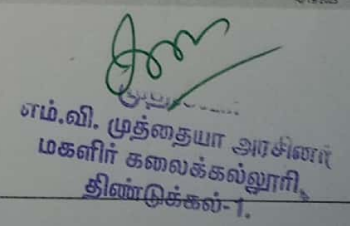 எம்.வி. முத்தையா அரசினர்
மகளிர் கலைக்கல்லூரி,
திண்டுக்கல்-1.